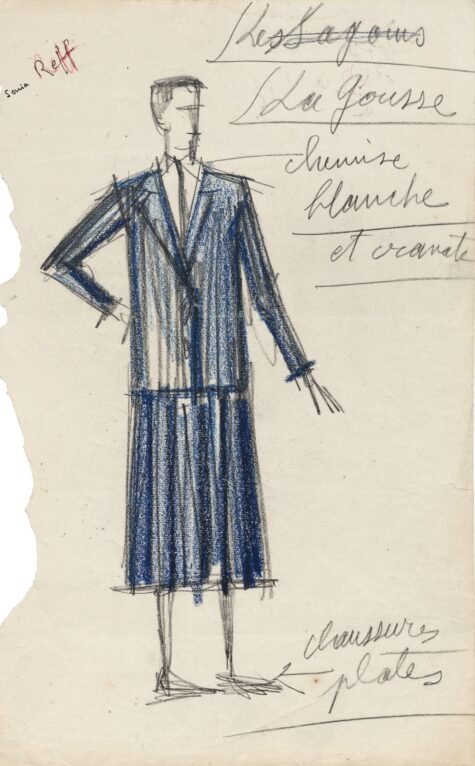 Sonia
Reff
Les
La Gousse
chemise
blanche
et cravate
chaussures
plates